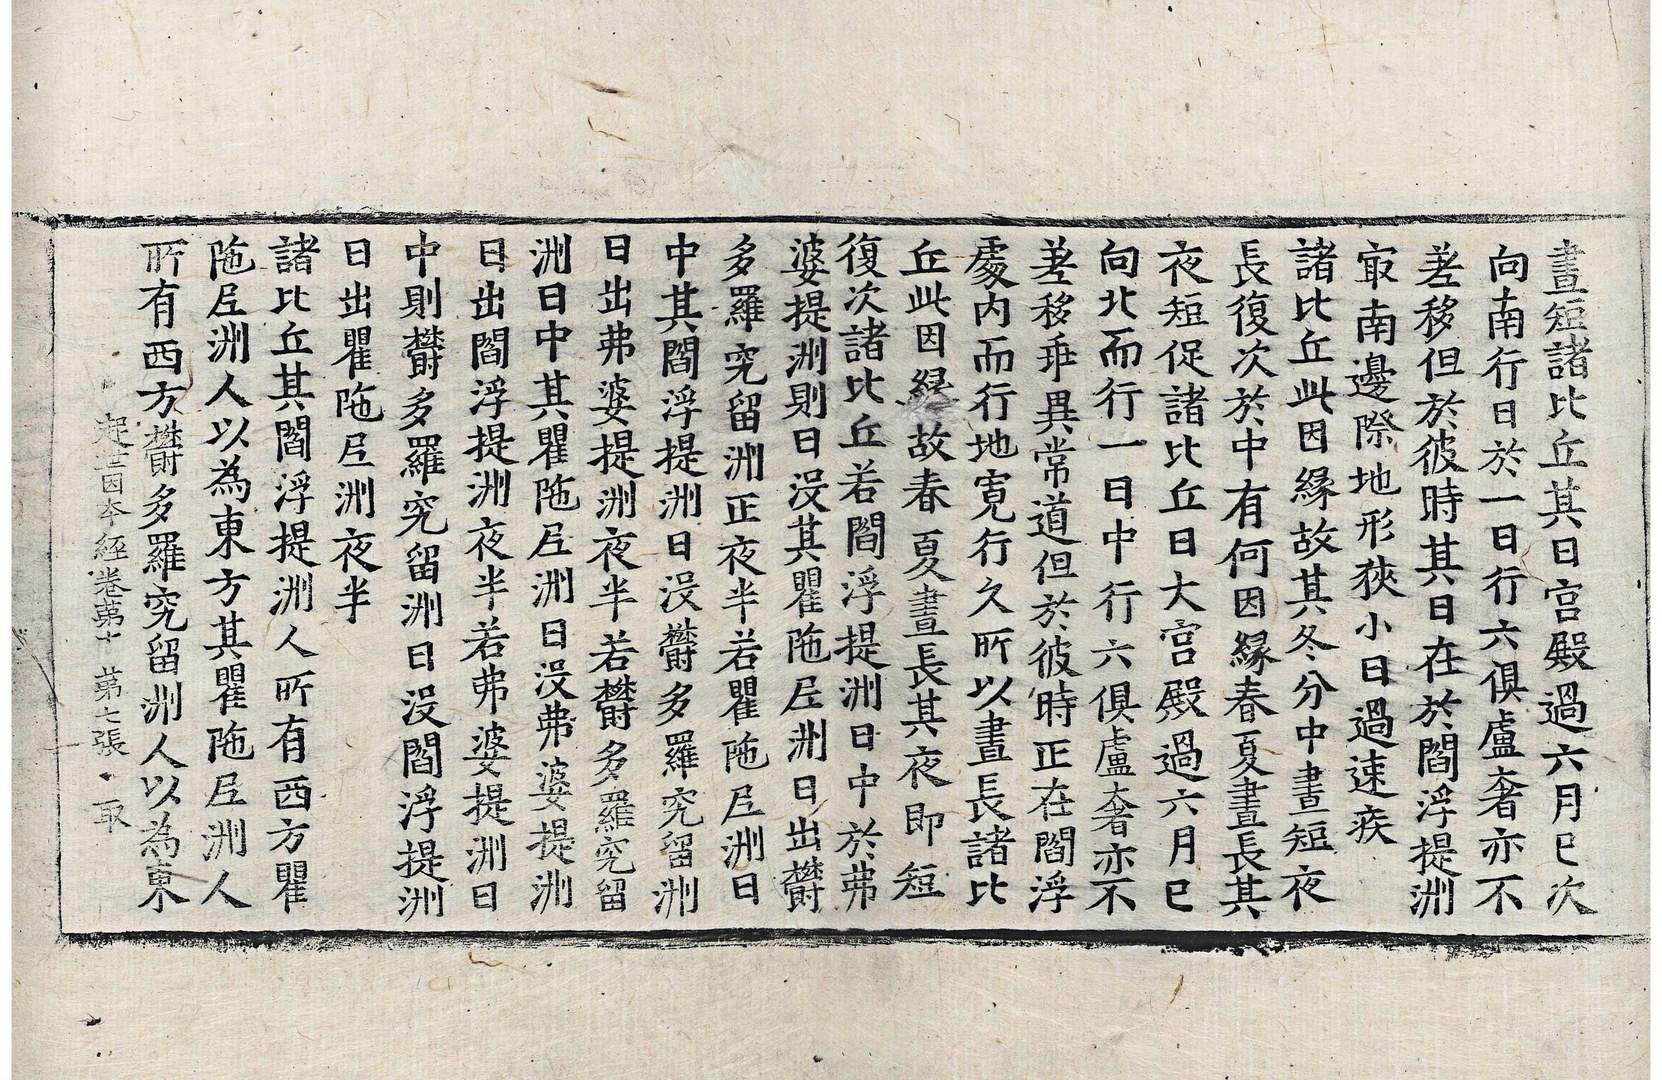 晝短諸比丘其日宮殿過六月已次
向南行日於一日行六俱盧奢亦不
差移但於彼時其日在於閻浮提洲
㝡南邊際地形狹小日過速疾
諸比丘此因緣故其冬分中晝短夜
長復次於中有何因緣春夏晝長其
夜短促諸比丘日大宮殿過六月已
向北而行一日中行六俱盧奢亦不
差移乖異常道但於彼時正在閻浮
處內而行地寬行久所以晝長諸比
丘此因緣故春夏晝長其夜即短
復次諸比丘若閻浮提洲日中於弗
婆提洲則日沒其瞿陁尼洲日出欝
多羅究留洲正夜半若瞿陁尼洲日
中其閻浮提洲日沒欝多羅究留洲
日出弗婆提洲夜半若欝多羅究留
洲日中其瞿陁尼洲日沒弗婆提洲
日出閻浮提洲夜半若弗婆提洲日
中則欝多羅究留洲日沒閻浮提洲
日出瞿陁尼洲夜半
諸比丘其閻浮提洲人所有西方瞿
陁尼洲人以為東方其瞿陁尼洲人
所有西方欝多羅究留洲人以為東
起世因本經卷第十 第七張 取